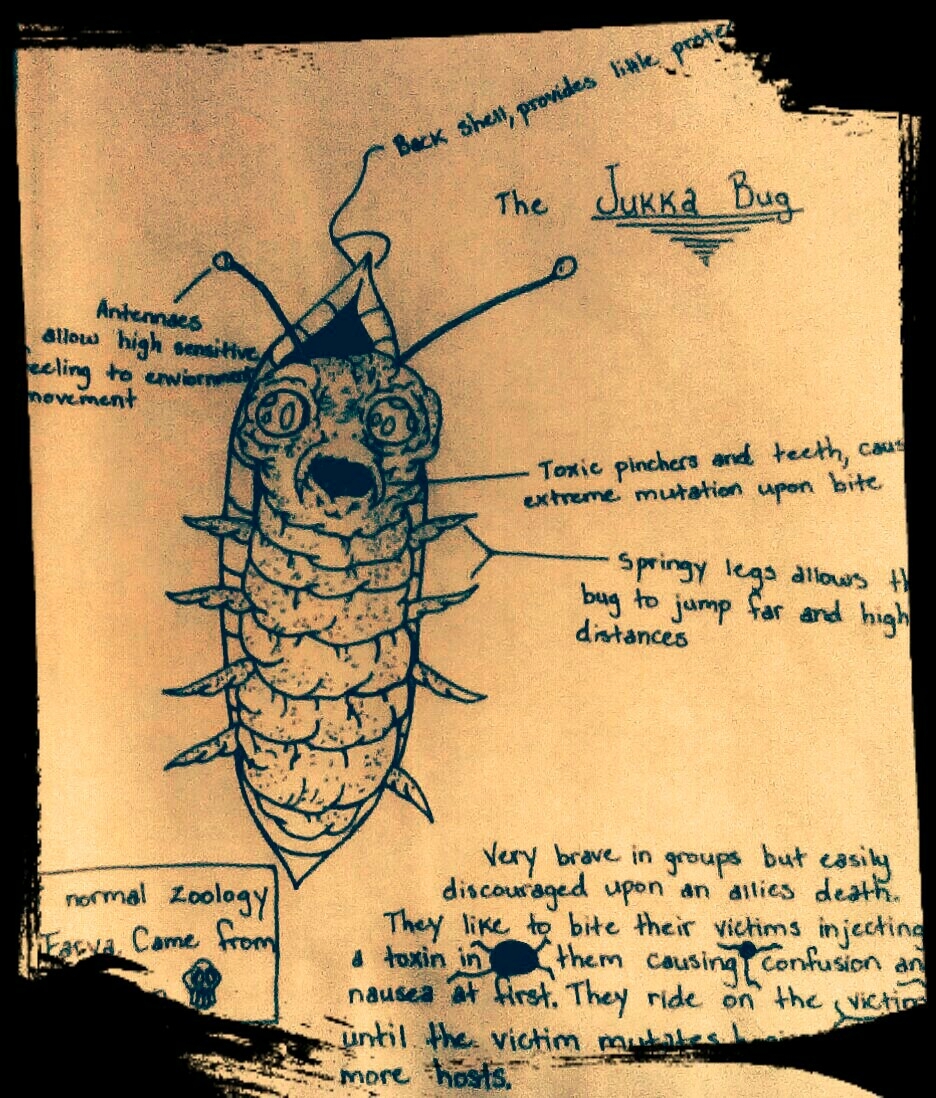 Back shell, provides little prote
The Jukka Bug
Antennaes
allow high sensitive
eeling to enviornment
movement
Toxic pinchers and teeth, caus
extreme mutation upon bite
Springy legs allows th
bug to jump far and high
distances
Very brave in groups but easily
discouraged upon an allies death.
They like to bite their victims injecting
a toxin in them causing confusion an
nausea at first. They ride on the victim
until the victim mutates
more hosts.
normal zoology
Came from